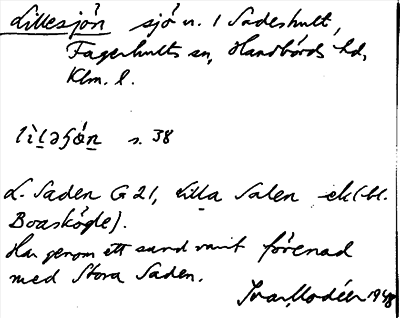 Lillesjön sjö n. I Sadeshult,
Fagerhults sn, Handbörds hd,
Klm. l.
s. 38
L. Saden G 21, Lilla Salen ek(bl.
Boaskögle).
Har genom ett sund varit förenad
med Stora Saden.
Ivar Modéer 1948